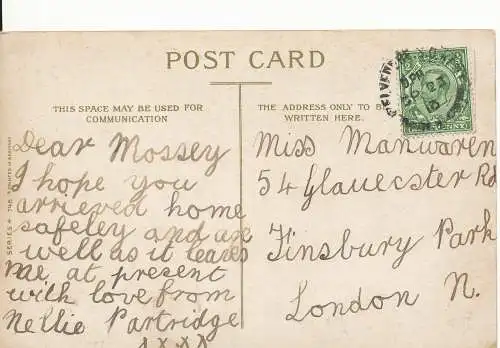 POST CARD
THIS SPACE MAY BE USED FOR
COMMUNICATION
Dear Mossey
I hope you
arrieved home
safeley and are
well as it leaves
me at present
with love from
Nellie Partridge
x x x x
THE ADDRESS ONLY TO BE
WRITTEN HERE.
Miss Manwaren
54 Glauecster Rd
Finsbury Park
London N.